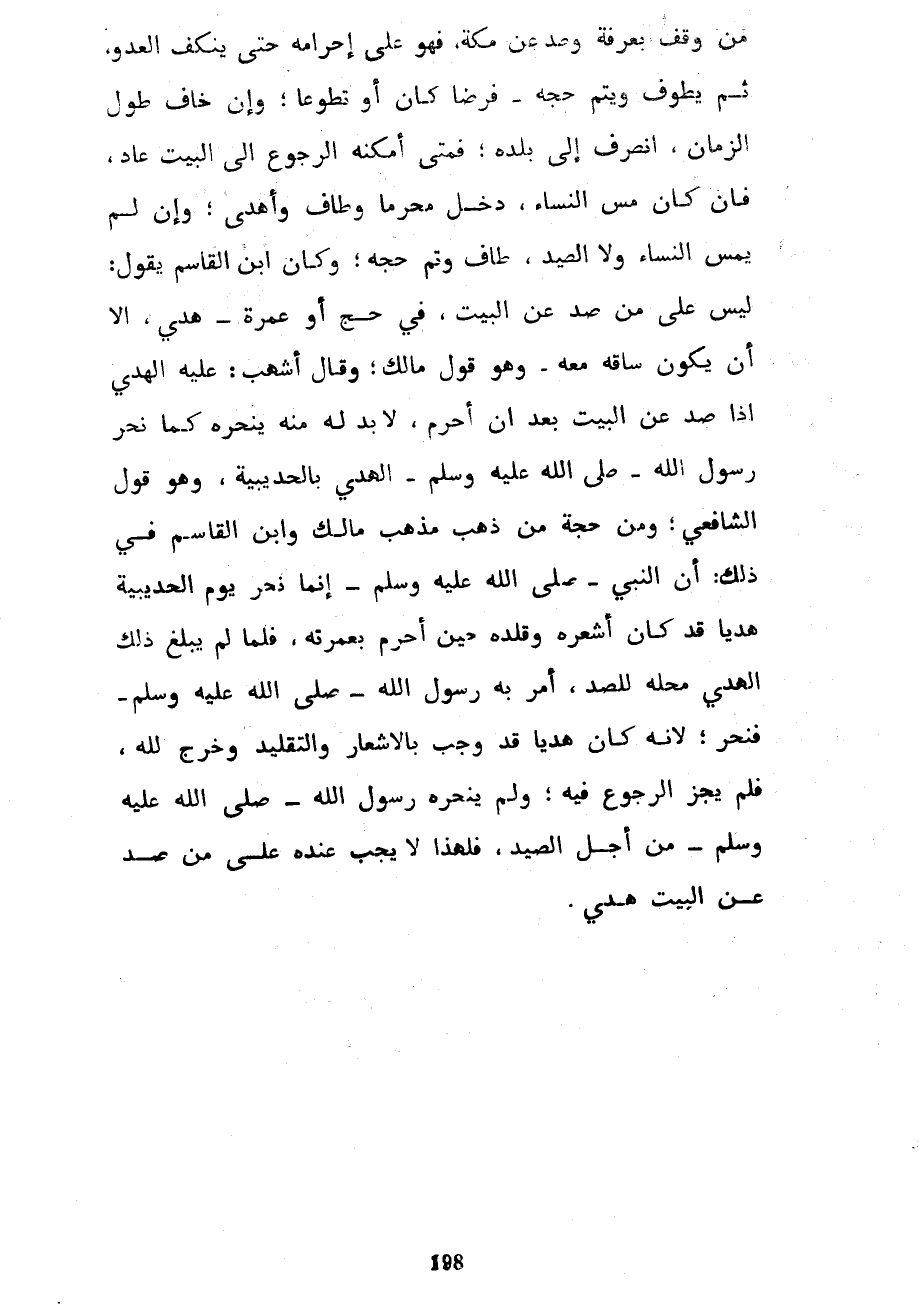 من وقف بعرفة وصد عن مكة، فهو على إحرامه حتى ينكف العدو،
ثم يطوف ويتم حجه - فرضا كان أو تطوعا ؛ وإن خاف طول
الزمان ، انصرف إلى بلده ؛ فمتى أمكنه الرجوع الى البيت عاد ،
فان كان مس النساء ، دخل محرما وطاف وأهدى ؛ وإن لم
يمس النساء ولا الصيد ، طاف وتم حجه ؛ وكان ابن القاسم يقول:
ليس على من صد عن البيت ، في حج أو عمرة - هدي ، الا
أن يكون ساقه معه - وهو قول مالك ؛ وقال أشهب : عليه الهدي
اذا صد عن البيت بعد ان أحرم ، لابد له منه ينحره كما نحر
رسول الله - صلى الله عليه وسلم - الهدي بالحديبية ، وهو قول
الشافعي ؛ ومن حجة من ذهب مذهب مالك وابن القاسم في
ذلك: أن النبي - صلى الله عليه وسلم - إنما نحر يوم الحديبية
هديا قد كان أشعره وقلده حين أحرم بعمرته ، فلما لم يبلغ ذلك
الهدي محله للصد ، أمر به رسول الله - صلى الله عليه وسلم-
فنحر ؛ لانه كان هديا قد وجب بالاشعار والتقليد وخرج لله ،
فلم يجز الرجوع فيه ؛ ولم ينحره رسول الله - صلى الله عليه
وسلم - من أجل الصيد ، فلهذا لا يجب عنده على من صد
عن البيت هدي .
198